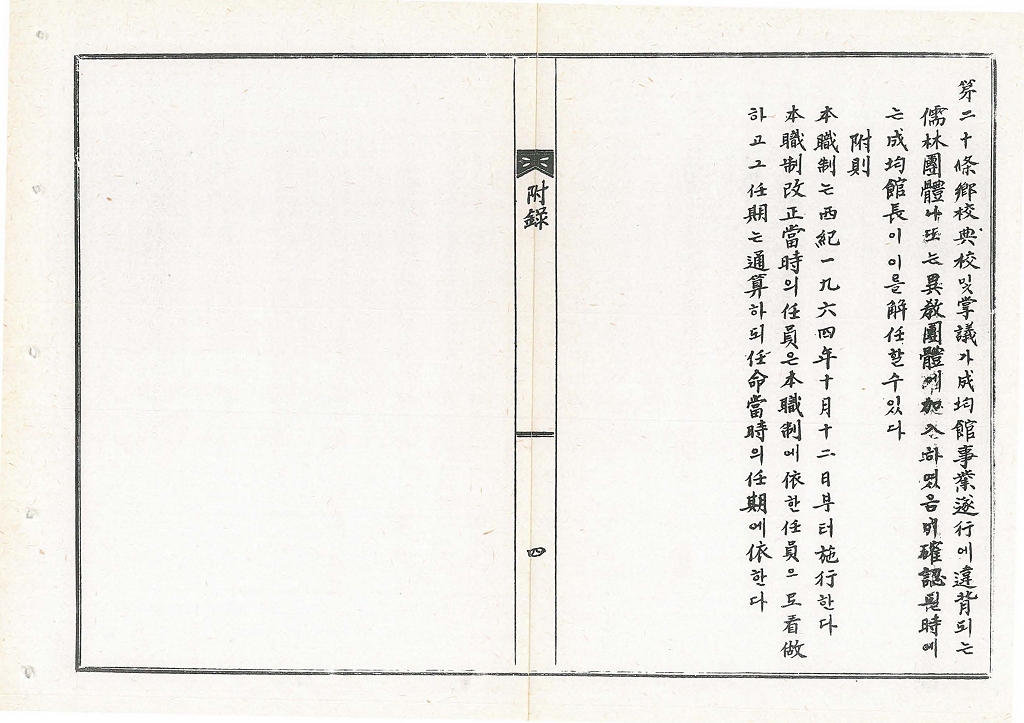 第二十條鄕校典校및掌議가成均館事業遂行에違背되는
儒林團體나또는異敎團體에加入하였음이確認될時에
는成均館長이이를解任할수있다
附則
本職制는西紀一九六四年十月十二日부터施行한다
本職制改正當時의任員은本職制에依한任員으로看做
하고그任期는通算하되任命當時의任期에依한다
附錄
四